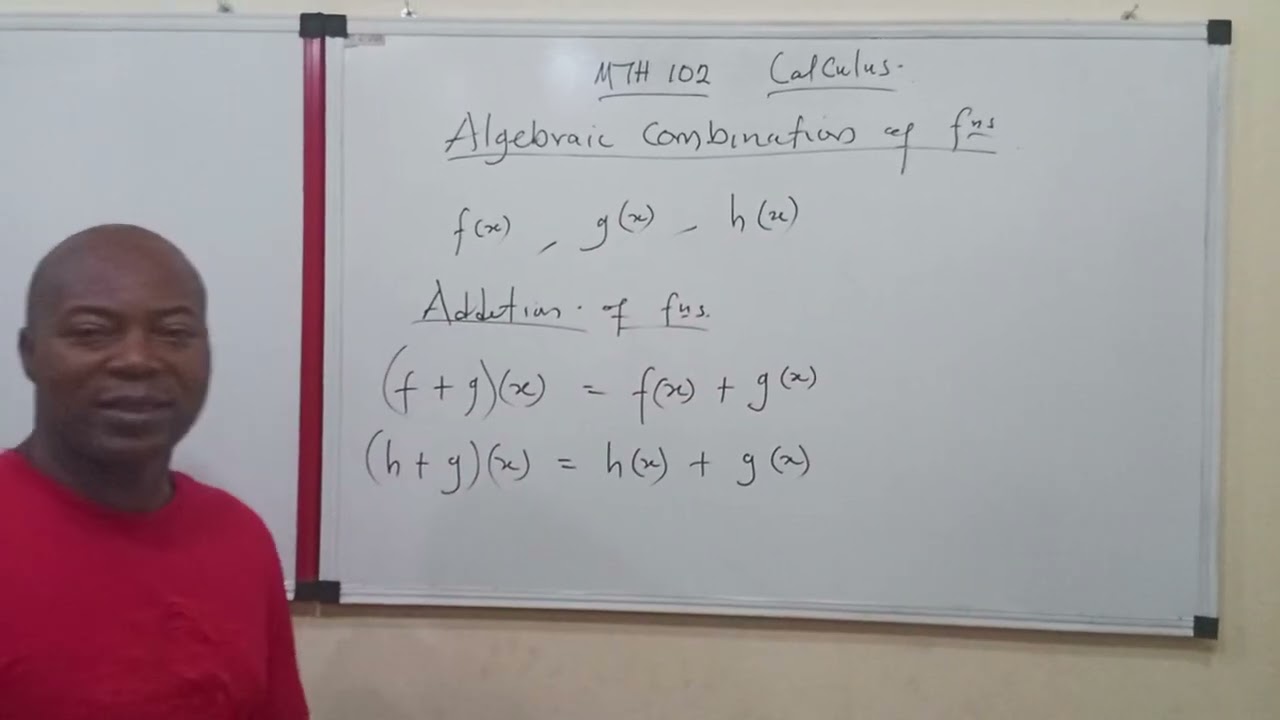 MTH 102 Calculus.
Algebraic Combinations of fns
f(x) , g(x) , h(x)
Addition of fns.
(f + g)(x) = f(x) + g(x)
(h + g)(x) = h(x) + g(x)